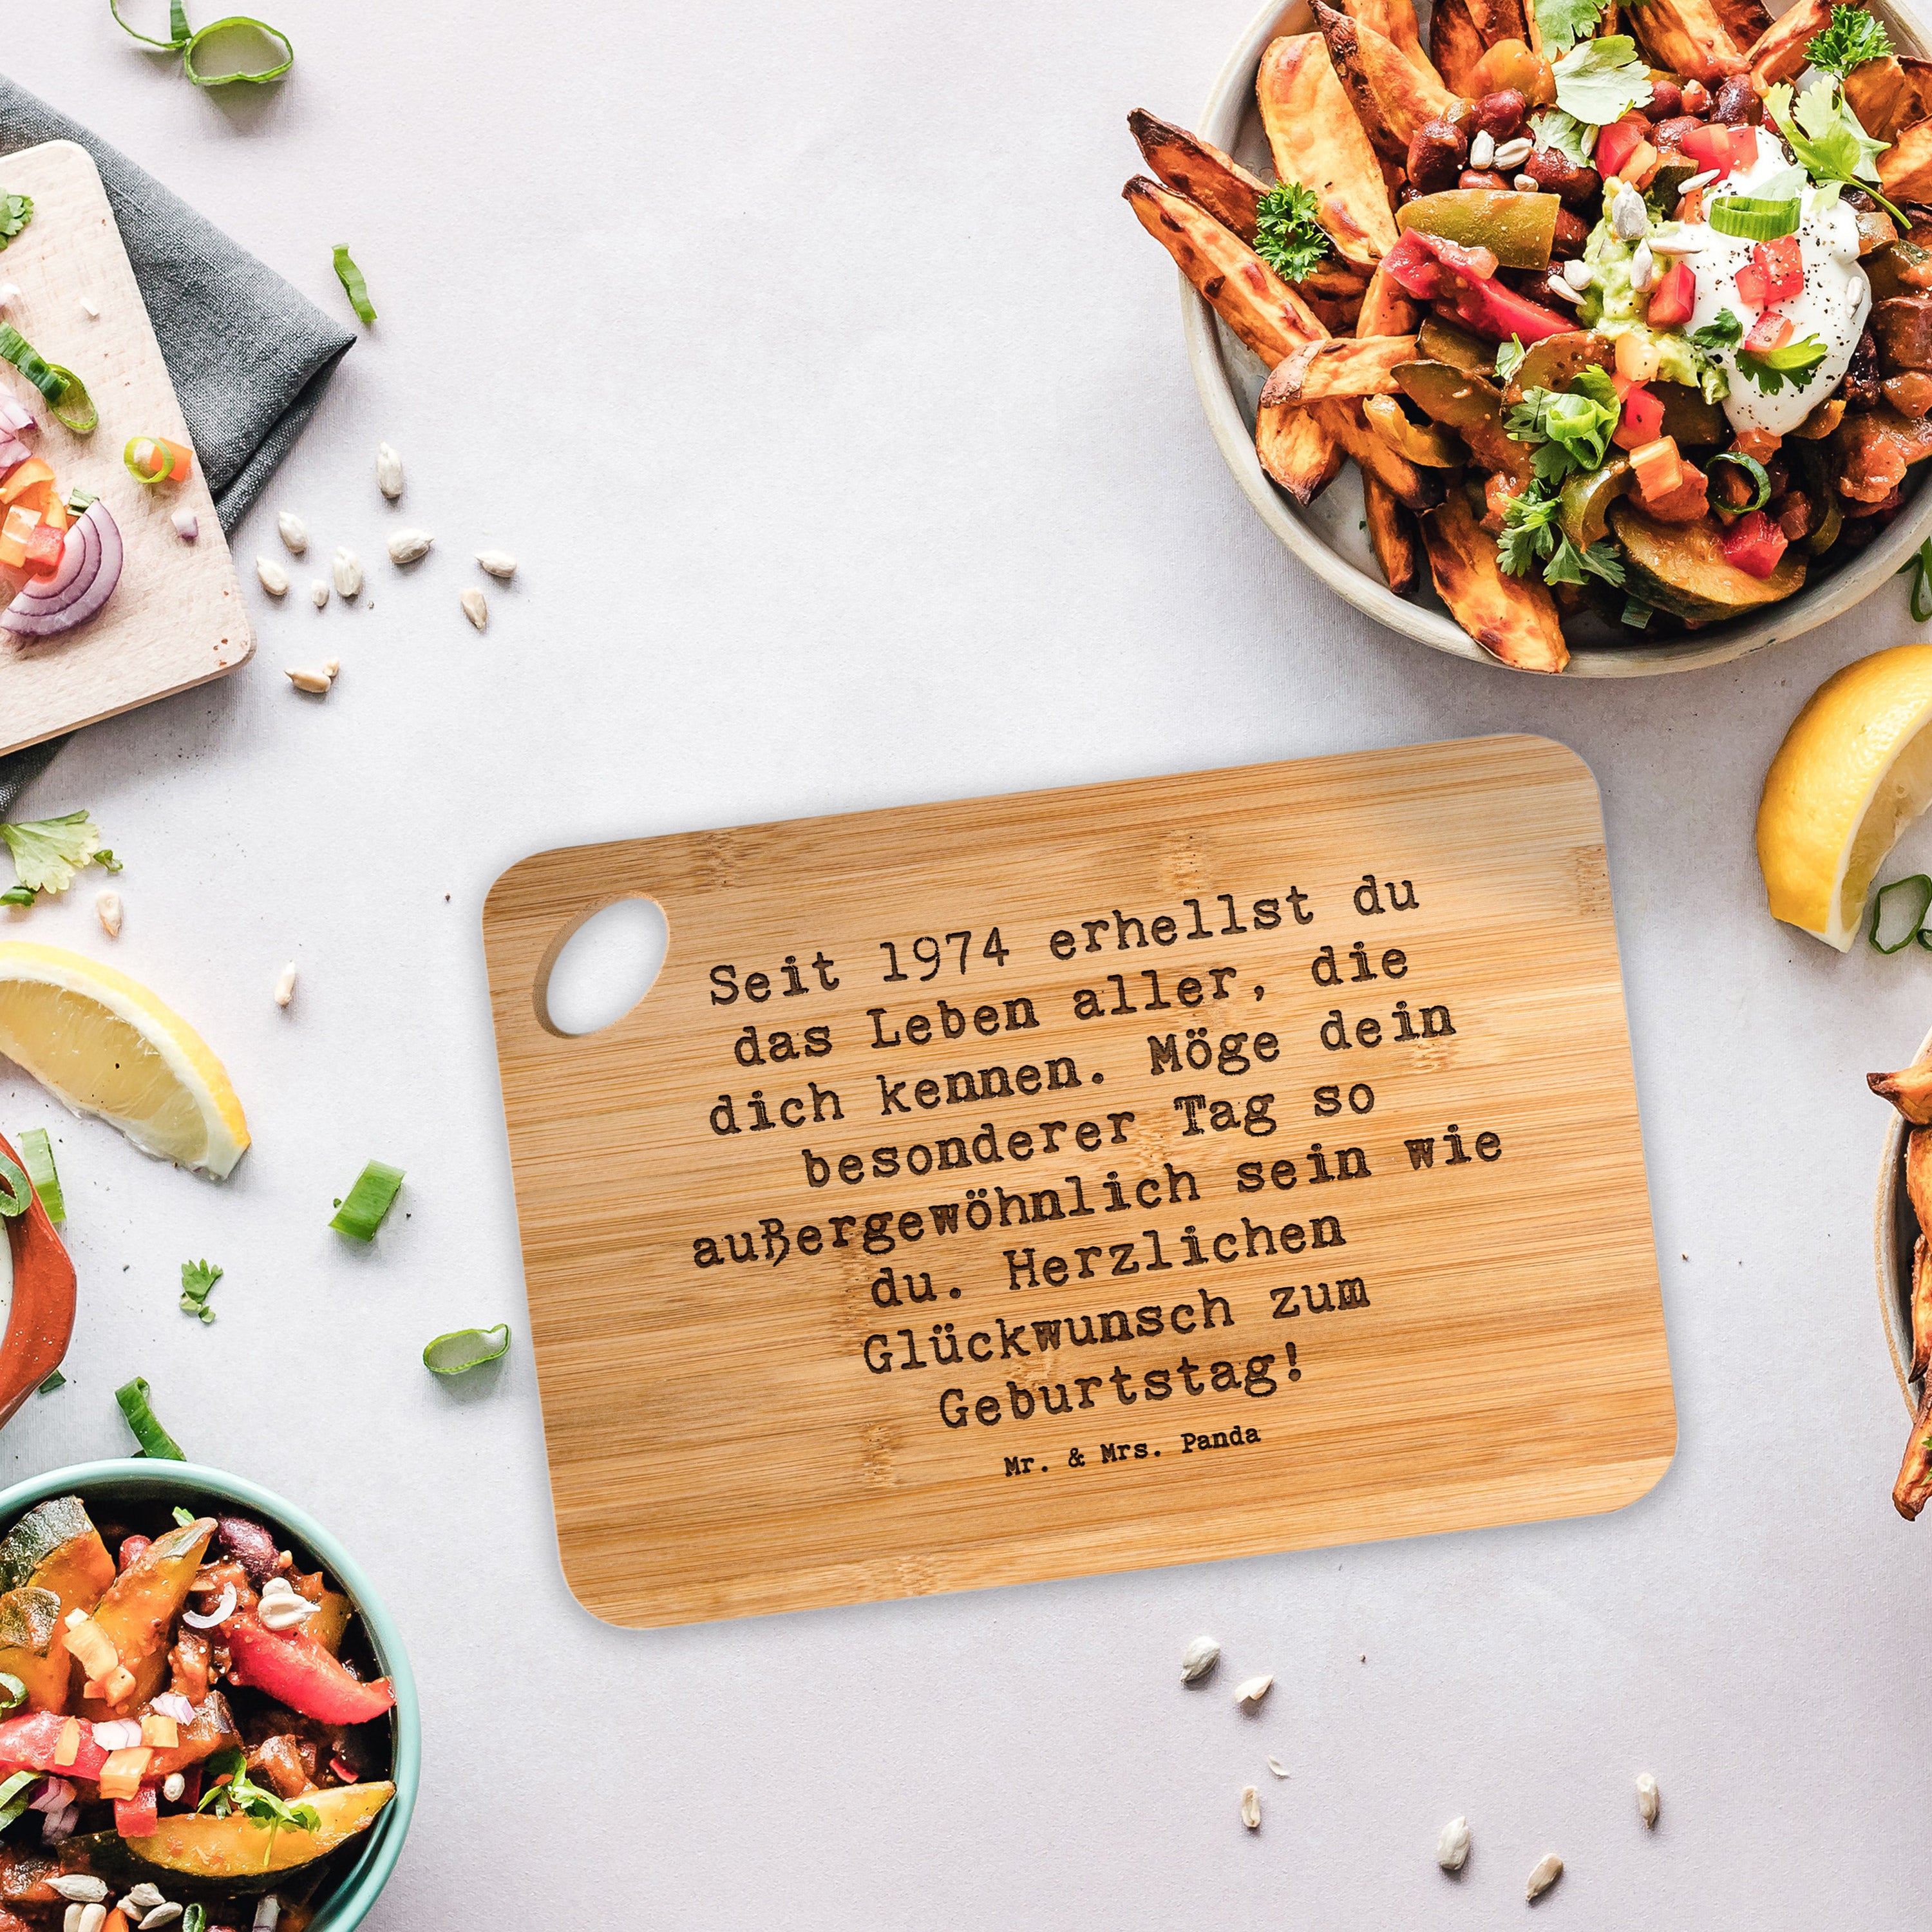 Seit 1974 erhellst du
das Leben aller, die
dich kennen. Möge dein
besonderer Tag so
außergewöhnlich sein wie
du. Herzlichen
Glückwunsch zum
Geburtstag!
Mr. & Mrs. Panda